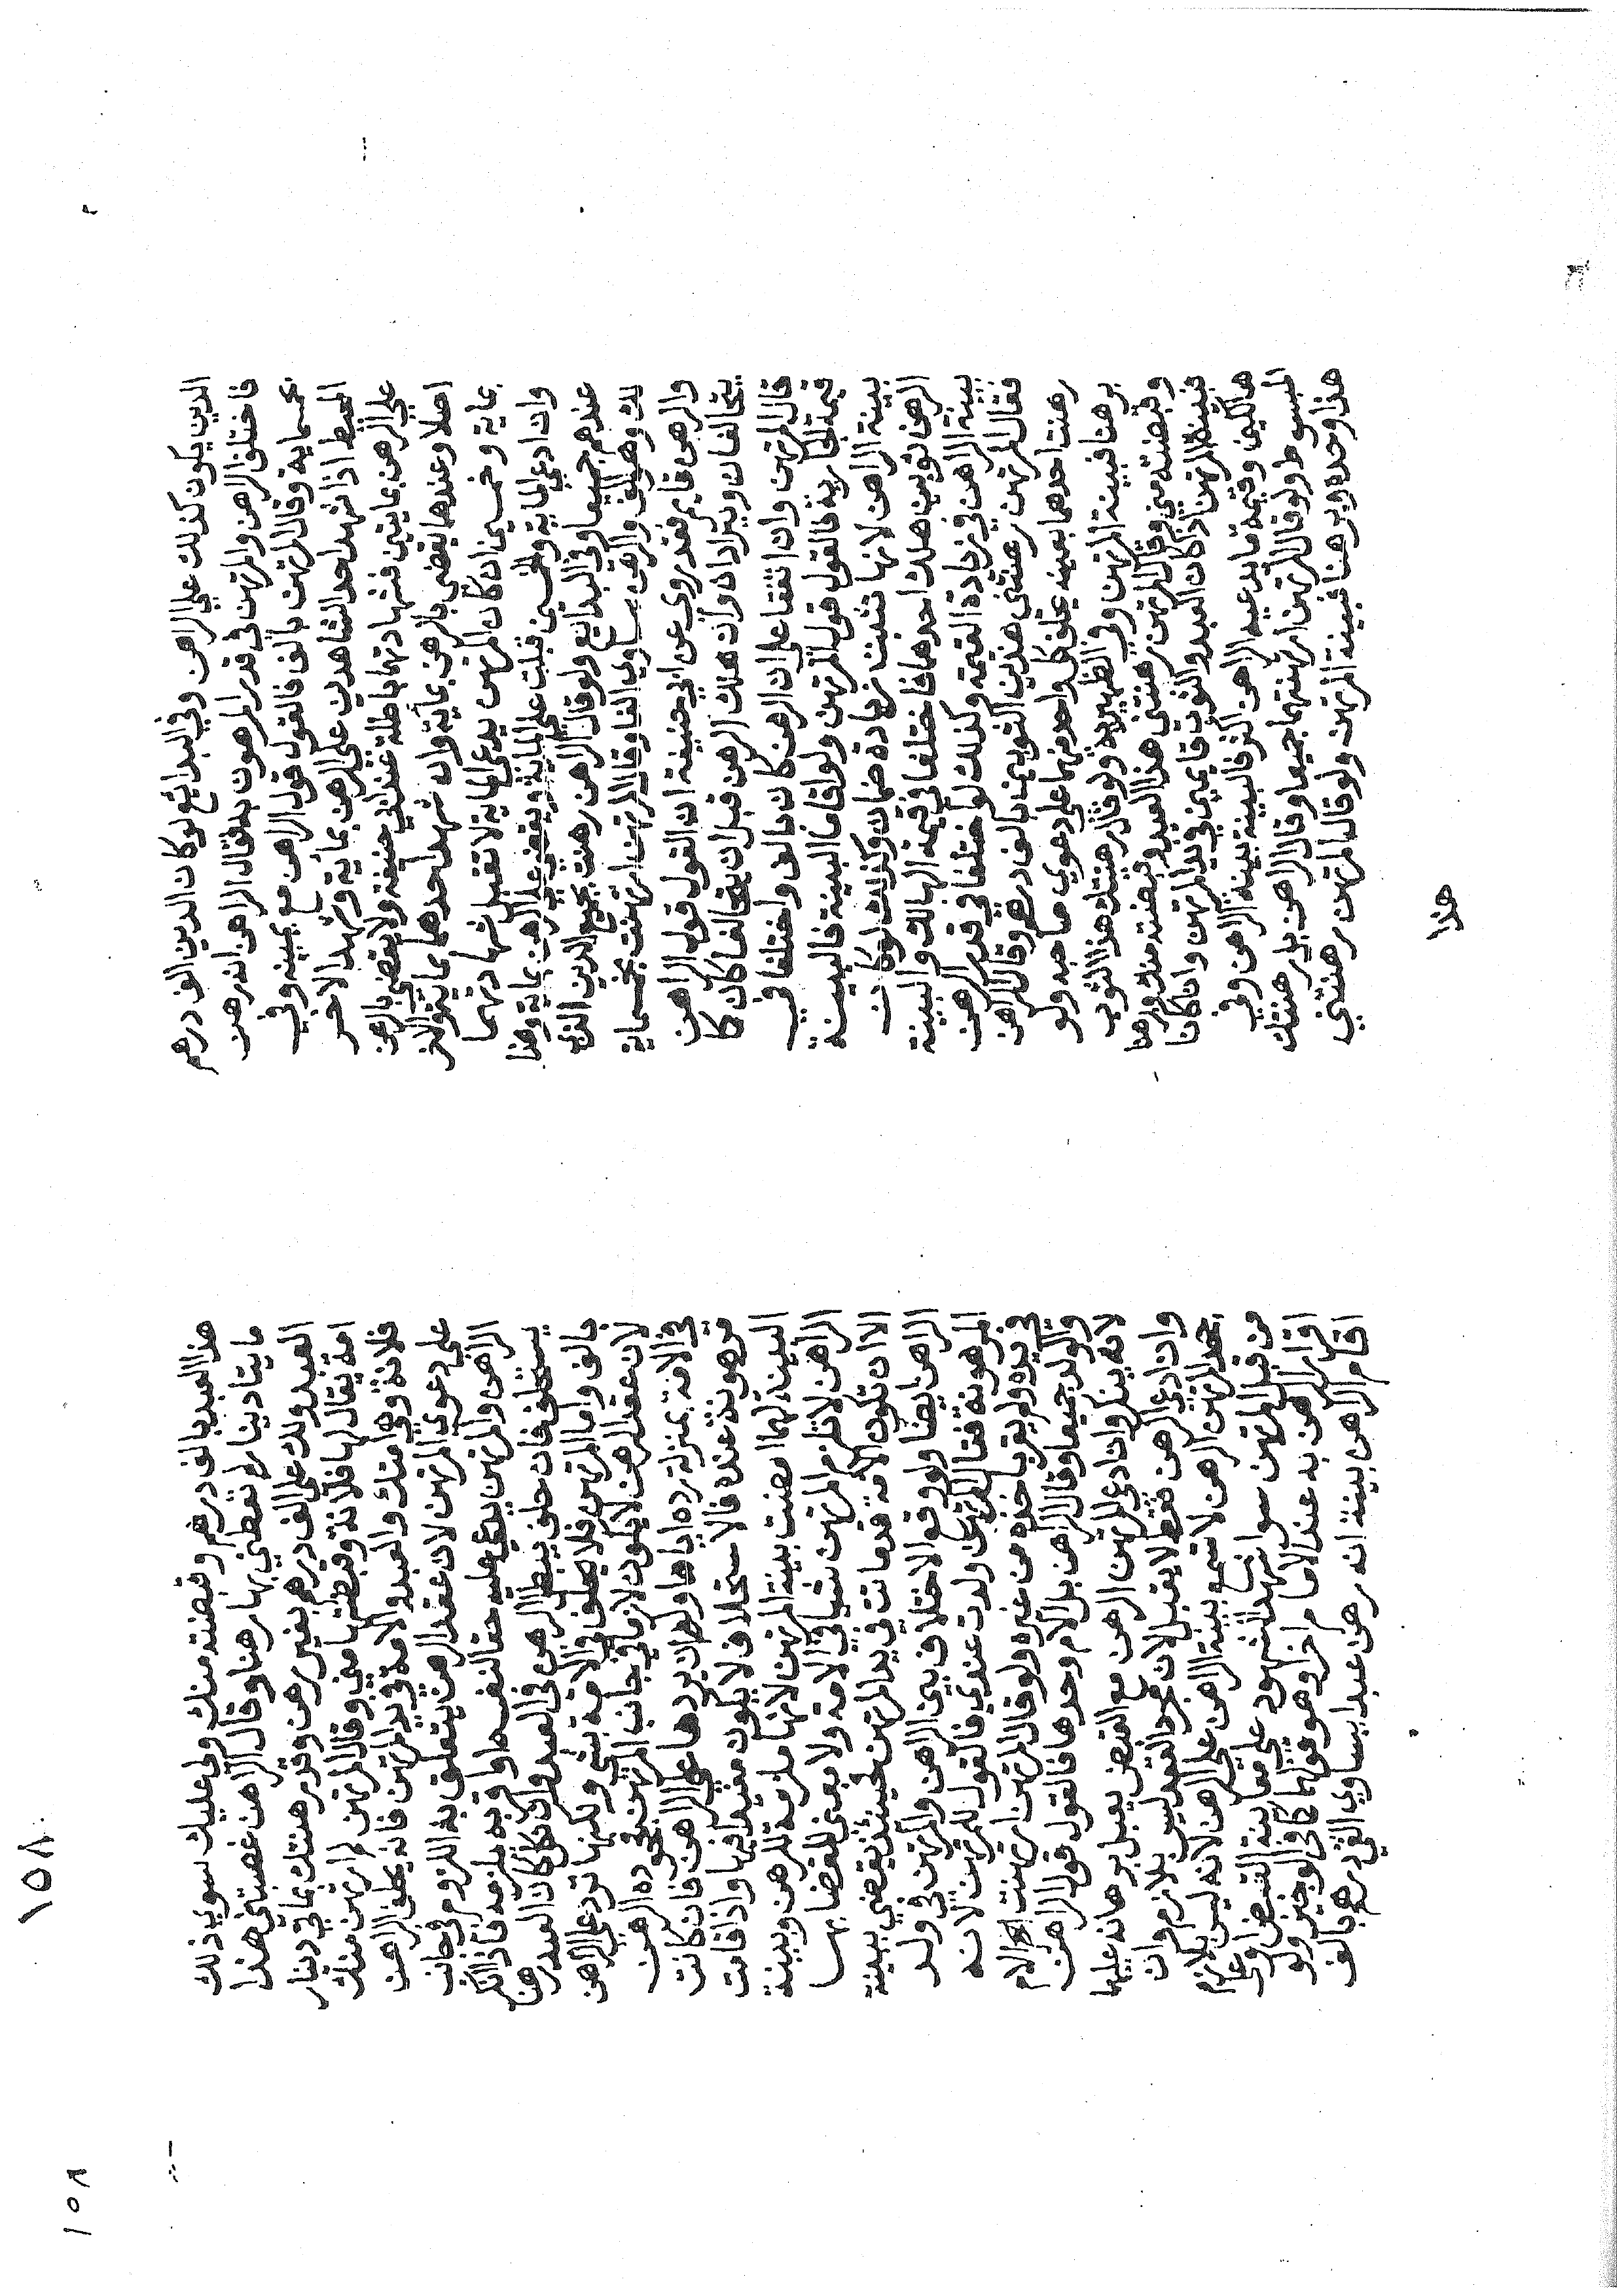 الدين يكون كذلك علي الراهن وفي البدائع لو كان الدين الف درهم
فاختلف الراهن والمرتهن في قدر المرهون به فقال الراهن انه رهن
بخمسماية وقال المرتهن بالف فالقول قول الراهن مع يمينه وفي
المحيط اذا شهد احد الشاهدين علي الرهن بماية وشهد الاخر
علي الرهن بمايتين فشهادتهما باطلة عند ابي حنيفة ولا يقضي بالرهن
اصلا وعندهما يقضي بالرهن بماية وان شهد احدهما بماية والاخر
بماية وخمسين ان كان المرتهن يدعي الماية لا تقبل شهادتهما
وان ادعي الماية والخمسين قبلت علي الماية ويقضي علي الرهن بماية وهذا
عندهم جميعا وفي البدائع ولو قال الراهن رهنت بجميع الدين الذي
لك وهو الف والرهن يساوي الفا وقال المرتهن ارتهنت بخمسماية
والرهن قايم فقد روي عن ابي حنيفة ان القول قول الراهن
يتحالفان ويترادان وان هلك الرهن قبل ان يتحالفا كان كما
قال المرتهن وان اتفقا علي ان الرهن كان بالف واختلفا في
قيمة الجارية فالقول قول المرتهن ولو اقاما البينة فالبينة
بينة الراهن لانها تثبت زيادة ضمان وكذلك لو كان
الرهن ثوبين هلك احدهما فاختلفا في قيمة الهالك والبينة
بينة الراهن في زيادة القيمة وكذلك لو اختلفا في قدر الرهن
فقال المرتهن رهنتني هذين الثوبين بالف درهم وقال الراهن
رهنت احدهما بعينه يحلف كل واحد منهما علي دعوي صاحبه ولو
برهنا فبينة المرتهن وفي الظهيرية ولو قال رهنتك هذا الثوب
وقبضته مني وقال المرتهن رهنتني هذا العبد وقبضته منك وبرهنا
فبينة المرتهن اذا كان العبد والثوب قايمين في يد المرتهن وان كانا
هالكين وقيمة ما يدعيه الراهن اكثر فالبينة بينة الراهن وفي
المبسوط ولو قال المرتهن ارتهنتهما جميعا وقال الراهن بل رهنتك
هذا وحده وبرهنا فبينة المرتهن ولو قال المرتهن رهنتني
هذا
١٥٨
١٥٨
هذا العبد بالف درهم وقبضته منك ولي عليك سوي ذلك
مايتا دينار لم تعطني بها رهنا وقال الراهن غصبتني هذا
العبد ولك علي الف درهم بغير رهن وقد رهنتك بمايتي دينار
امة يقال لها فلانة وقبضتها مني وقال المرتهن لم ارتهن منك
فلانة وهي امتك والعبد والامة في يد المرتهن فانه يحلف الراهن
علي دعوي المرتهن لان عقد الرهن يتعلق به اللزوم في جانب
الراهن والمرتهن يدعي عليه حقا لنفسه لو اقر به يلزمه فاذا انكر
يستحلف فان حلف يبطل الرهن في العبد وان نكل كان العبد رهنا
بالف واما المرتهن فلا يحلف في الامة بشي ولكنها ترد علي الراهن
لان عقد الرهن لا يكون لازما في جانب المرتهن فجحوده الرهن
في الامة بمنزلة رده اياها وله ان يردها علي الراهن فان كانت
مرهونة عنده فالاستحلاف لا يكون مفيدا فيها واذا قامت
البينة لهما امضيت بينة المرتهن لانها ملزمة للرهن وبينة
الراهن لا تلزم المرتهن شيا في الامة ولا معني للقضا بها
الا ان تكون الامة قد ماتت في يد المرتهن فحينئذ يقضي ببينة
الراهن ايضا ولو وقع الاختلاف بين الراهن والمرتهن في ولد
المرهونة فقال المرتهن ولدت عندي فالقول للمرتهن لانه
في يده ولم يقر باخذه من غيره ولو قال المرتهن ارتهنت الام
والولد جميعا وقال الراهن بل الام وحدها فالقول قول الراهن
لانه ينكر وان ادعي المرتهن الرهن مع القبض يقبل برهانه عليها
وان ادعي الرهن فقط لا يقبل لان مجرد العقد ليس بلازم وان
جحد المرتهن الرهن لا تسمع بينة الراهن علي الرهن لانه ليس بلازم
من قبل المرتهن سوا شهد الشهود علي معاينة القبض او علي
اقرار الراهن به عند الامام اخرا وهو قولهما كما في الوجيز ولو
اقام الراهن بينة انه رهن عبدا يساوي الفي درهم بالف